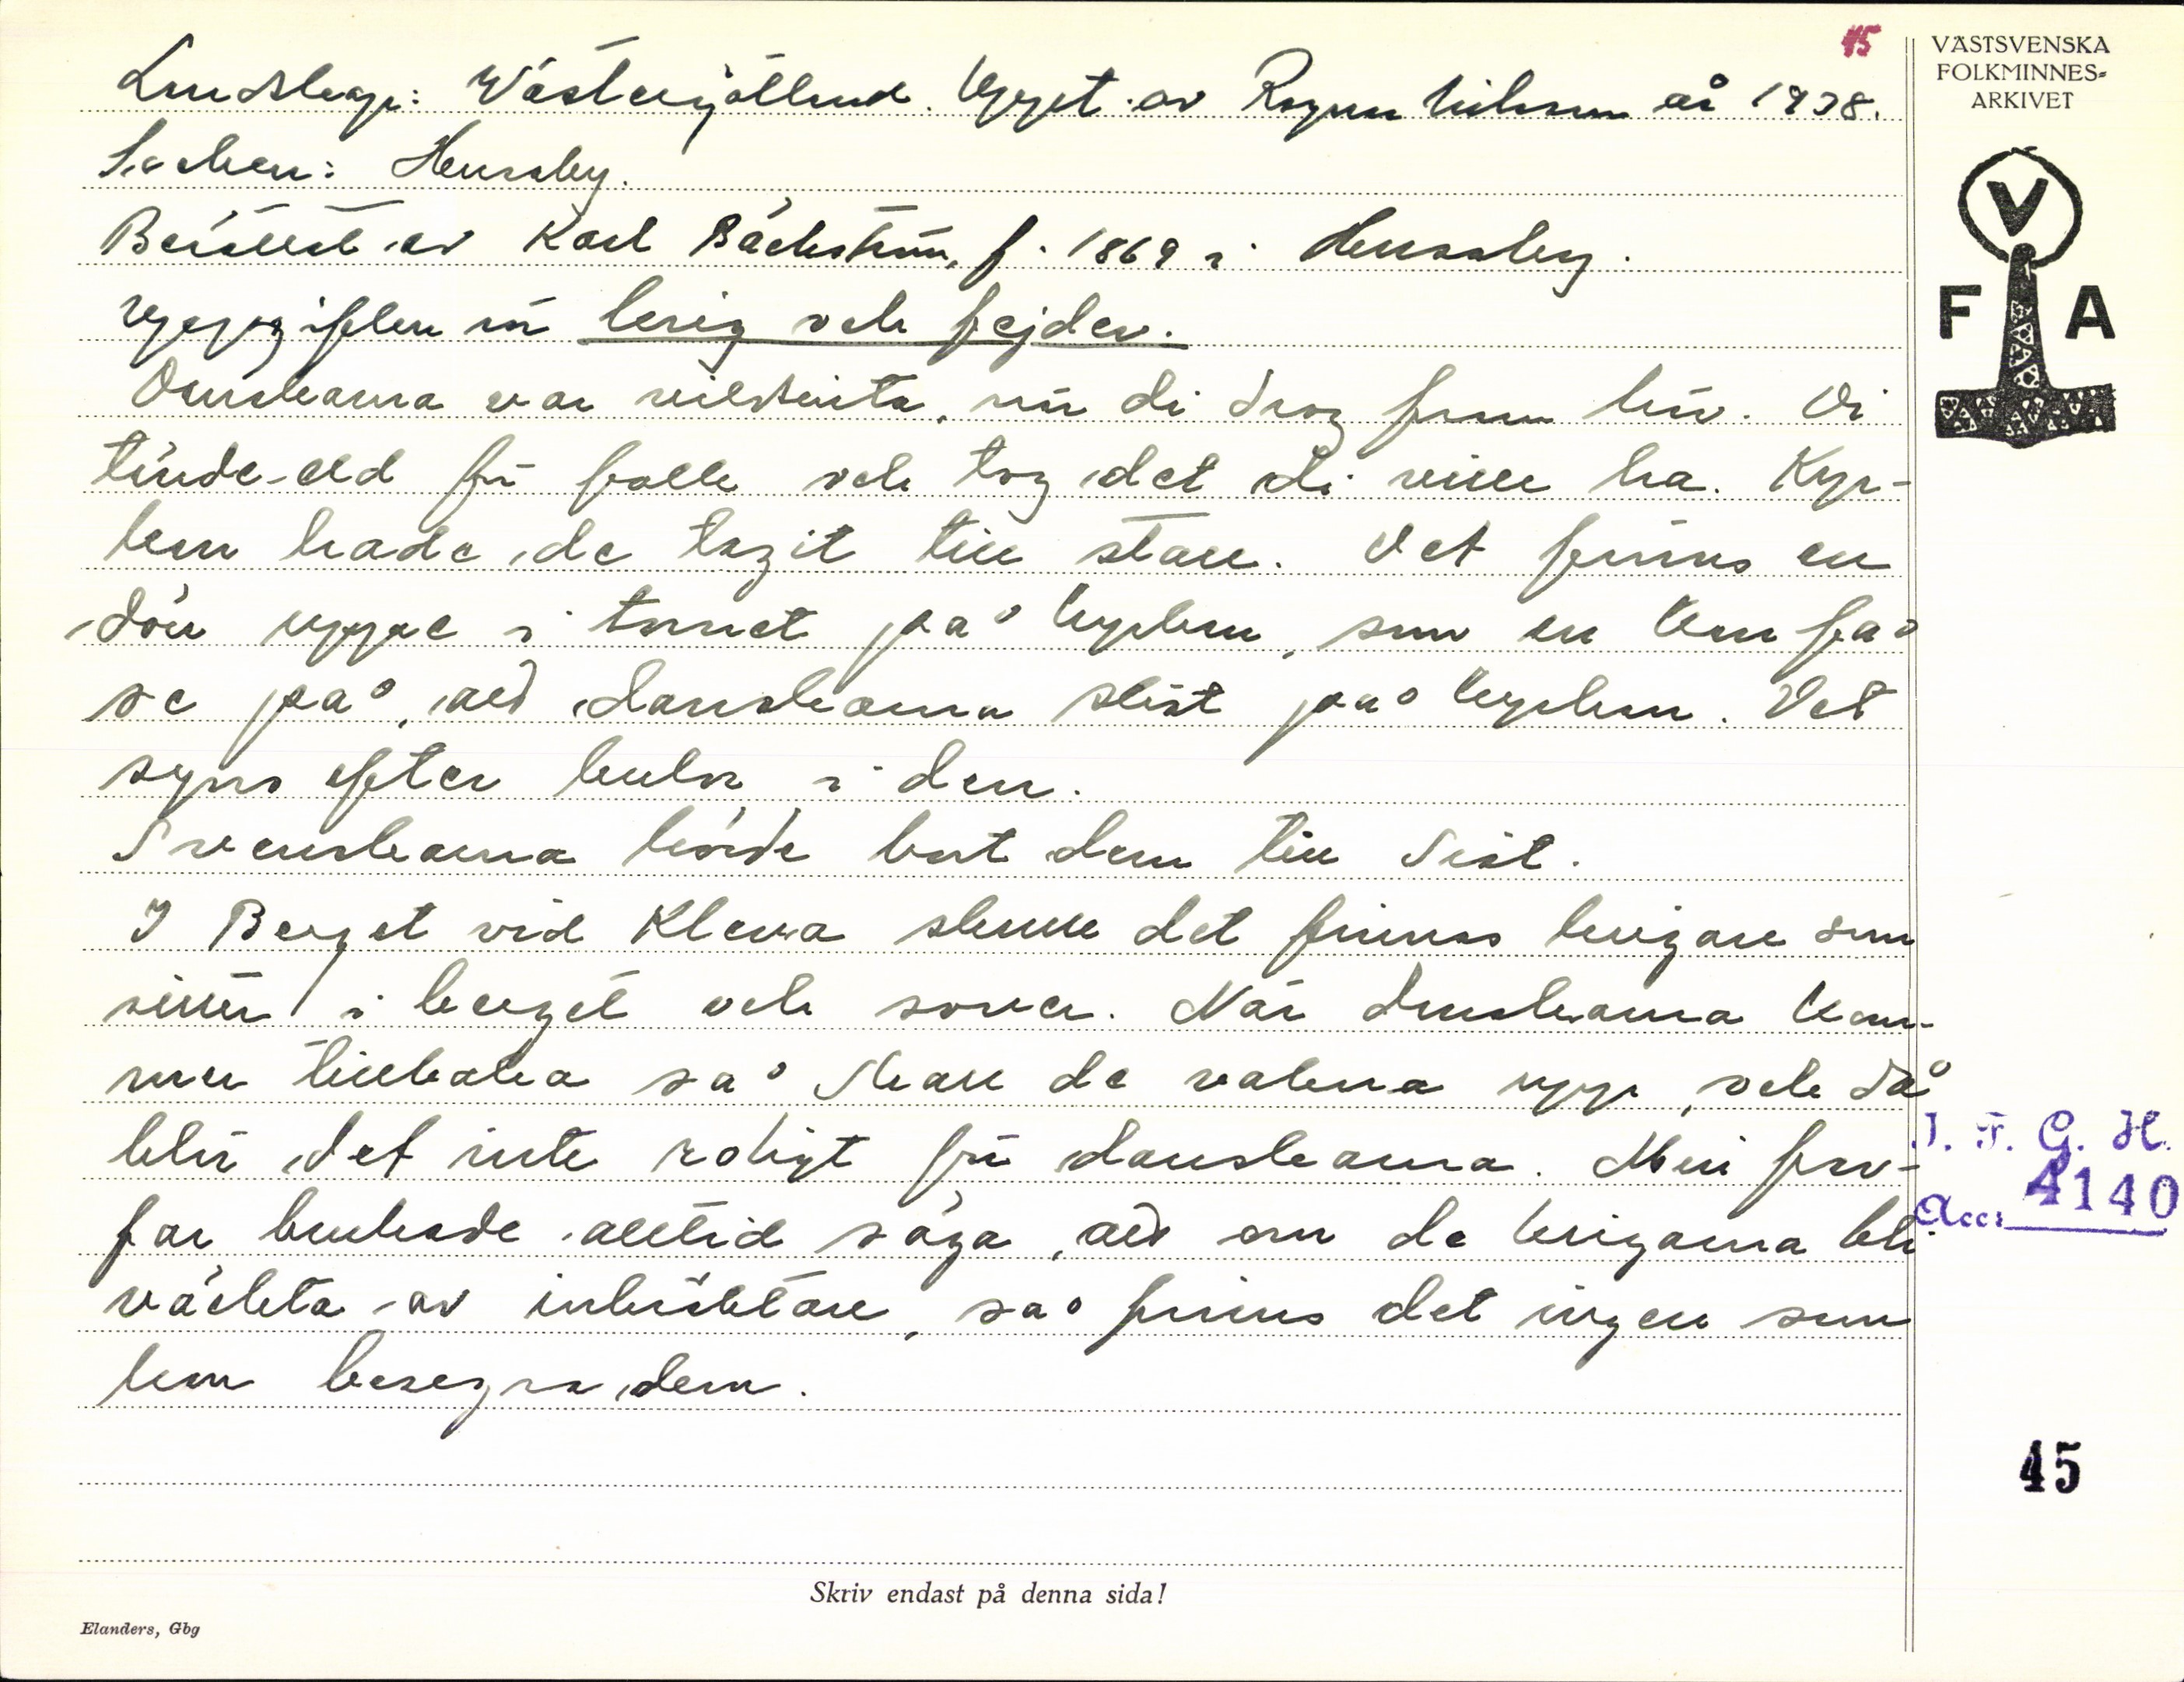 45
VÄSTSVENSKA
FOLKMINNES-
ARKIVET
V
F A
Landskap: Västergötland. Uppt. av Ragnar Nilsson år 1938.
Socken: Husaby.
Berättat av Karl Bäckström, f. 1869 i Husaby.
Uppgiften om krig och fejder.
Danskarna var vildsinta, när di drog fram här. Di
tände eld för folk och tog det di ville ha. Kyr-
kan hade de tagit till stall. Det finns en
dörr uppe i tornet på kyrkan, som en kan få
se på, att danskarna sköt på kyrkan. Det
syns efter kulor i den.
Svenskarna körde bort dem till sist.
I Berget vid Kleva skulle det finnas krigare som
sitter i berget och sover. När danskarna kom-
mer tillbaka så skall de vakna upp, och då
blir det inte roligt för danskarna. Min far-
far brukade alltid säga, att om de krigarna bli
väckta av inkräktare, så finns det ingen som
kan besegra dem.
I. F. G. H.
Acc: 4140
45
Skriv endast på denna sida!
Elanders, Gbg